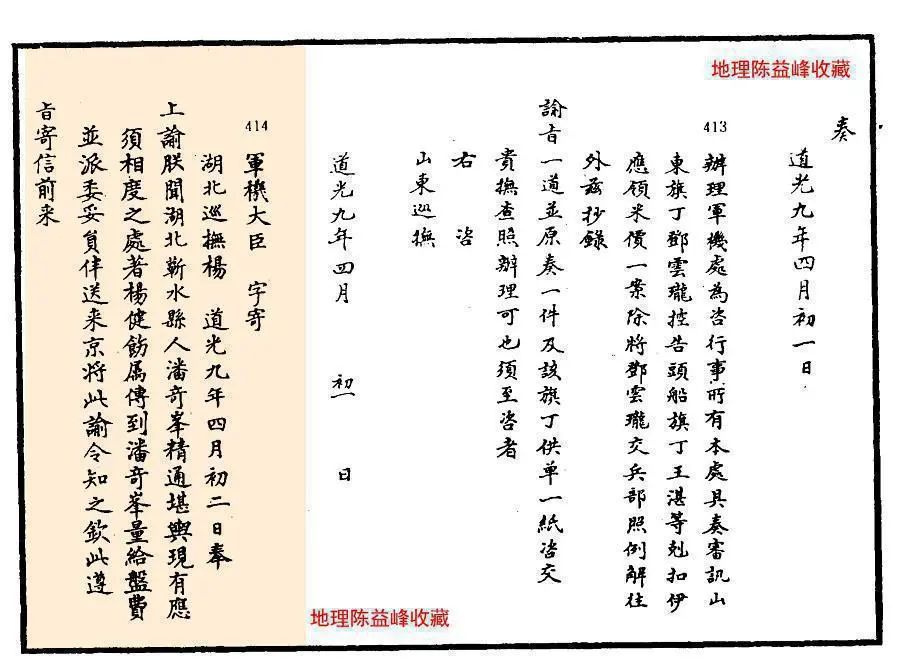 地理陈益峰收藏
奏
道光九年四月初一日
413
辦理軍機處為咨行事所有本處具奏審訊山
東旗丁鄧雲瓏控告頭船旗丁王湛等剋扣伊
應領米價一案除將鄧雲瓏交兵部照例解往
外茲抄錄
諭旨一道並原奏一件及該旗丁供单一紙咨交
貴撫查照辦理可也須至咨者
右咨
山東巡撫
道光九年四月初一日
414
軍機大臣 字寄
湖北巡撫楊 道光九年四月初二日奉
上諭朕聞湖北蘄水縣人潘奇峯精通堪輿現有應
須相度之處著楊健飭属傳到潘奇峯量給盤費
並派委妥負伴送来京將此諭令知之欽此遵
旨寄信前来
地理陈益峰收藏